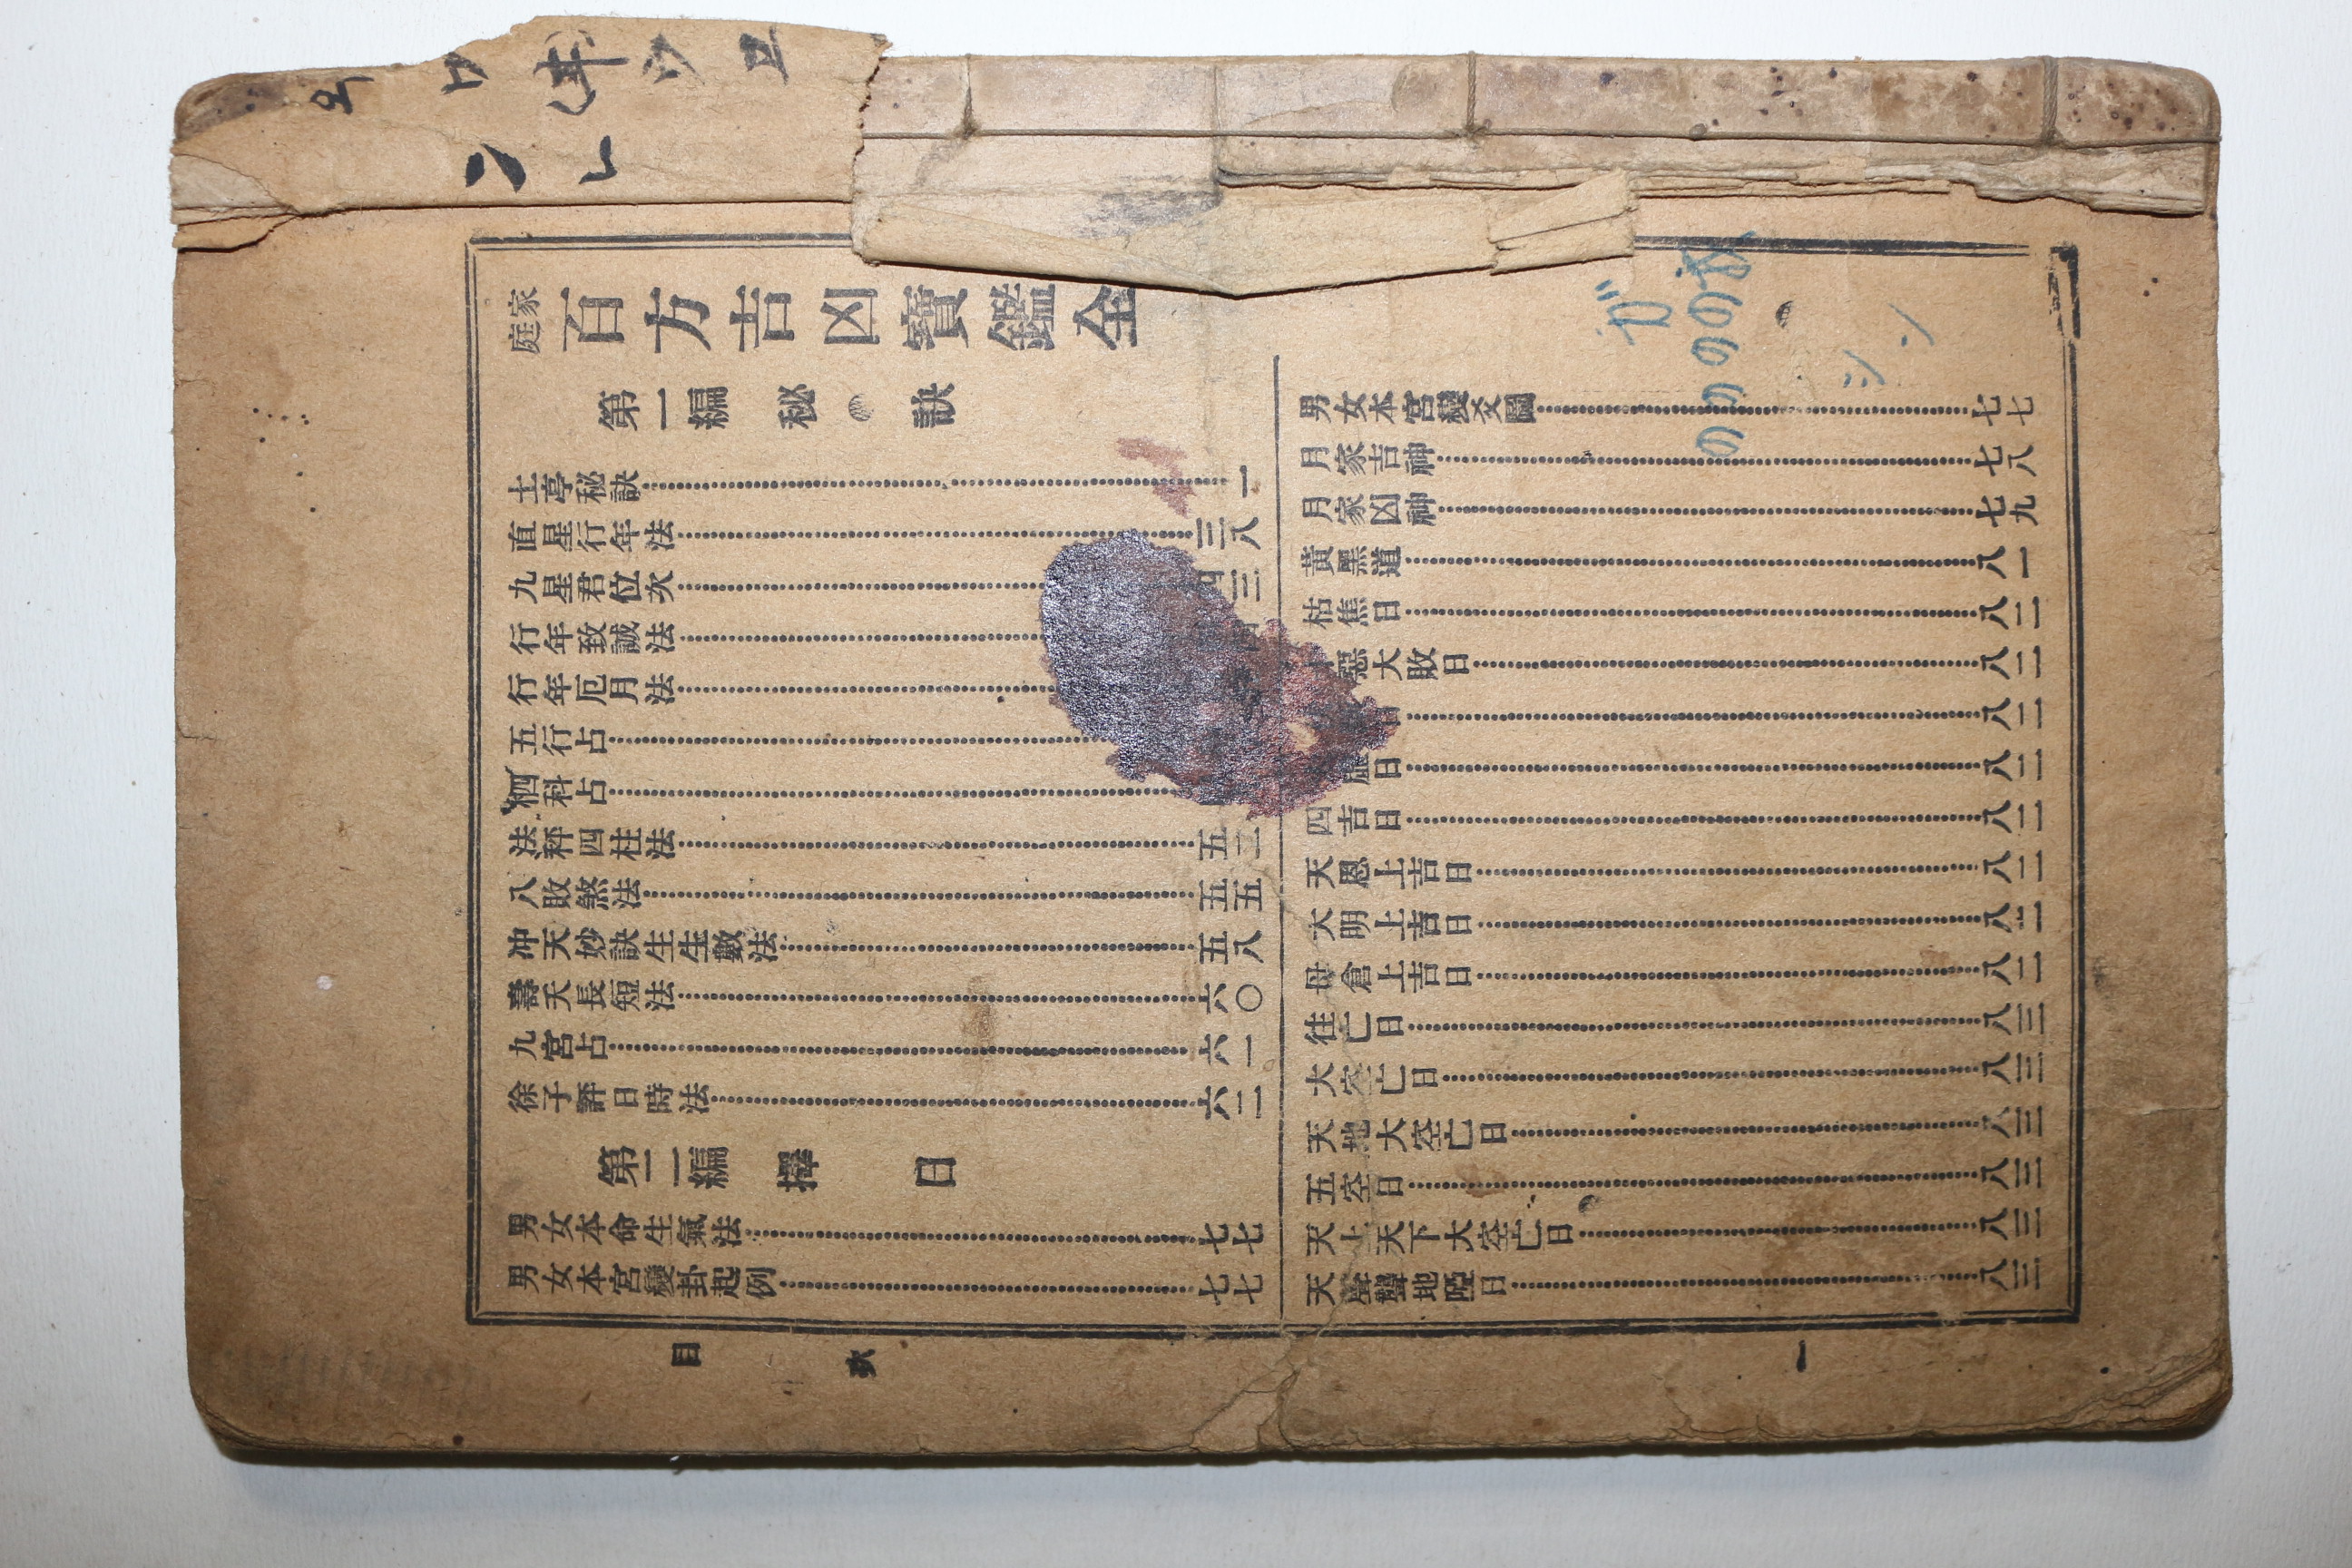 家庭 百方吉凶寶鑑全
第一編 秘訣
土亭秘訣 一
直星行年法 三八
九星君位次 四三
行年致誠法
行年厄月法
五行占
科占
法秤四柱法 五三
八敗煞法 五五
冲天妙訣生生數法 五八
壽夭長短法 六〇
九宮占 六一
徐子評日時法 六二
第二編 擇日
男女本命生氣法 七七
男女本宮變卦起例 七七
男女本宮變爻圖 七七
月家吉神 七八
月家凶神 七九
黃黑道 八一
枯焦日 八二
惡大敗日 八二
八二
虛日 八二
四吉日 八二
天恩上吉日 八二
大明上吉日 八二
母倉上吉日 八二
往亡日 八三
大空亡日 八三
天地大空亡日 八三
五空日 八三
天上天下大空亡日 八三
天聾地啞日 八三
目 次 一